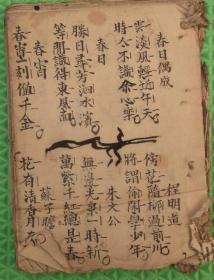 春日偶成 程明道
雲淡風輕近午天 傍花隨柳過前川
時人不識余心樂 將謂偷閒學少年
春日 朱文公
勝日尋芳泗水濱 無邊光景一時新
等閒識得東風面 萬紫千紅總是春
春宵 蘇子瞻
春宵一刻值千金 花有清香月有陰